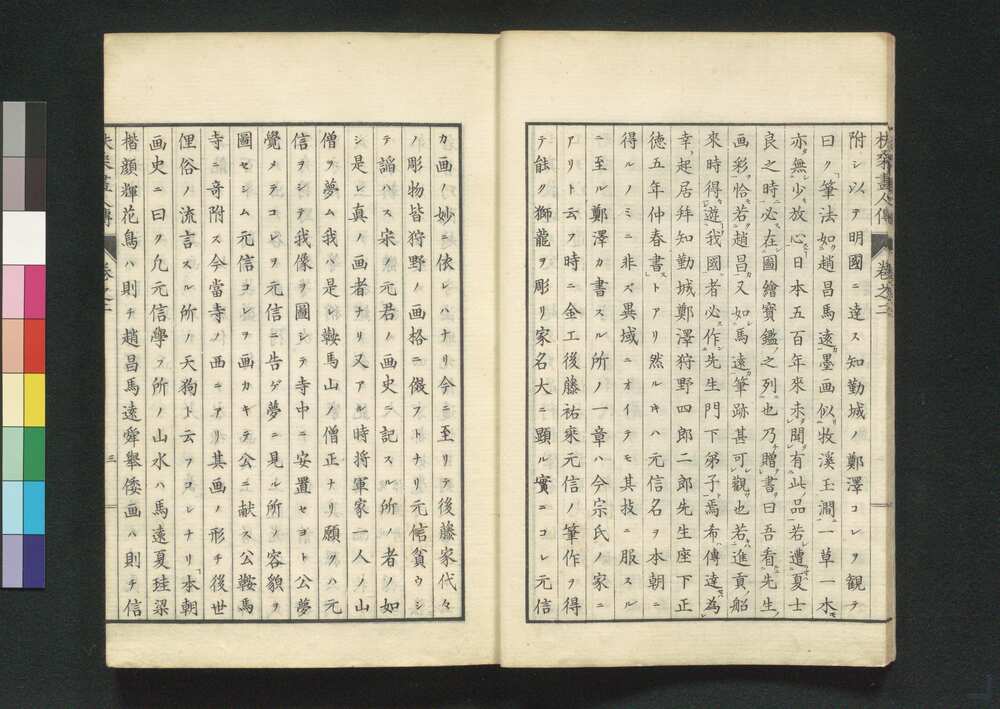 扶桑畫人傳 卷之二
附シ以テ明國ニ達ス知勤城ノ鄭澤コレヲ觀テ
曰ク筆法如趙昌馬遠墨画似牧溪玉澗一草一木
亦無少放心日本五百年來未聞有此品若遭夏士
良之時必在圖繪寶鑑之列也乃贈書曰吾看先生
画彩恰若趙昌又如馬遠筆跡甚可觀也若進貢船
來時得遊我國者必作先生門下弟子焉希傳達為
幸起居拜知勤城鄭澤狩野四郎二郎先生座下正
德五年仲春書トアリ然ルキハ元信名ヲ本朝ニ
得ルノミニ非ズ異域ニオイテモ其技ニ服スル
ニ至ル鄭澤カ書スル所ノ一章ハ今宗氏ノ家ニ
アリト云フ時ニ金工後藤祐乘元信ノ筆作ヲ得
テ能ク獅龍ヲ彫リ家名大ニ顯ル實ニコレ元信
カ画ノ妙ニ依レハナリ今ニ至リテ後藤家代々
ノ彫物皆狩野ノ画格ニ傚フトナリ元信貧ウシ
テ謟ハス宋ノ元君ノ画史ニ記スル所ノ者ノ如
シ是レ真ノ画者ナリ又アル時将軍家一人ノ山
僧ヲ夢ム我ハ是レ鞍馬山ノ僧正ナリ願クハ元
信ヲシテ我像ヲ圖シテ寺中ニ安置セヨト公夢
覺メテコレヲ元信ニ告ゲ夢ニ見ル所ノ容貌ヲ
圖セシム元信コレヲ画カキテ公ニ献ス公鞍馬
寺ニ奇附ス今當寺ノ西ニアリ其画ノ形チ後世
俚俗ノ流言スル所ノ天狗ト云フコレナリ本朝
画史ニ曰ク凢元信學フ所ノ山水ハ馬遠夏珪梁
楷顔輝花鳥ハ則チ趙昌馬遠舜擧倭画ハ則チ信
扶桑畫人傳 卷之二 三